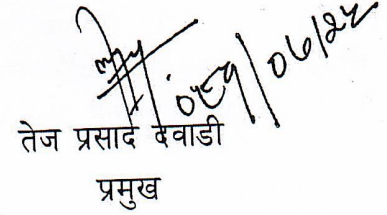 ०८१/०७/२५
तेज प्रसाद देवाडी
प्रमुख